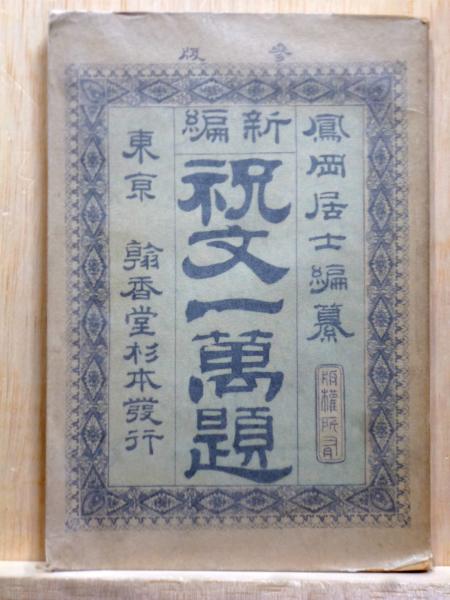 参版
鳳岡居士編纂
版權所有
新編
祝文一萬題
東京　翰香堂杉本發行